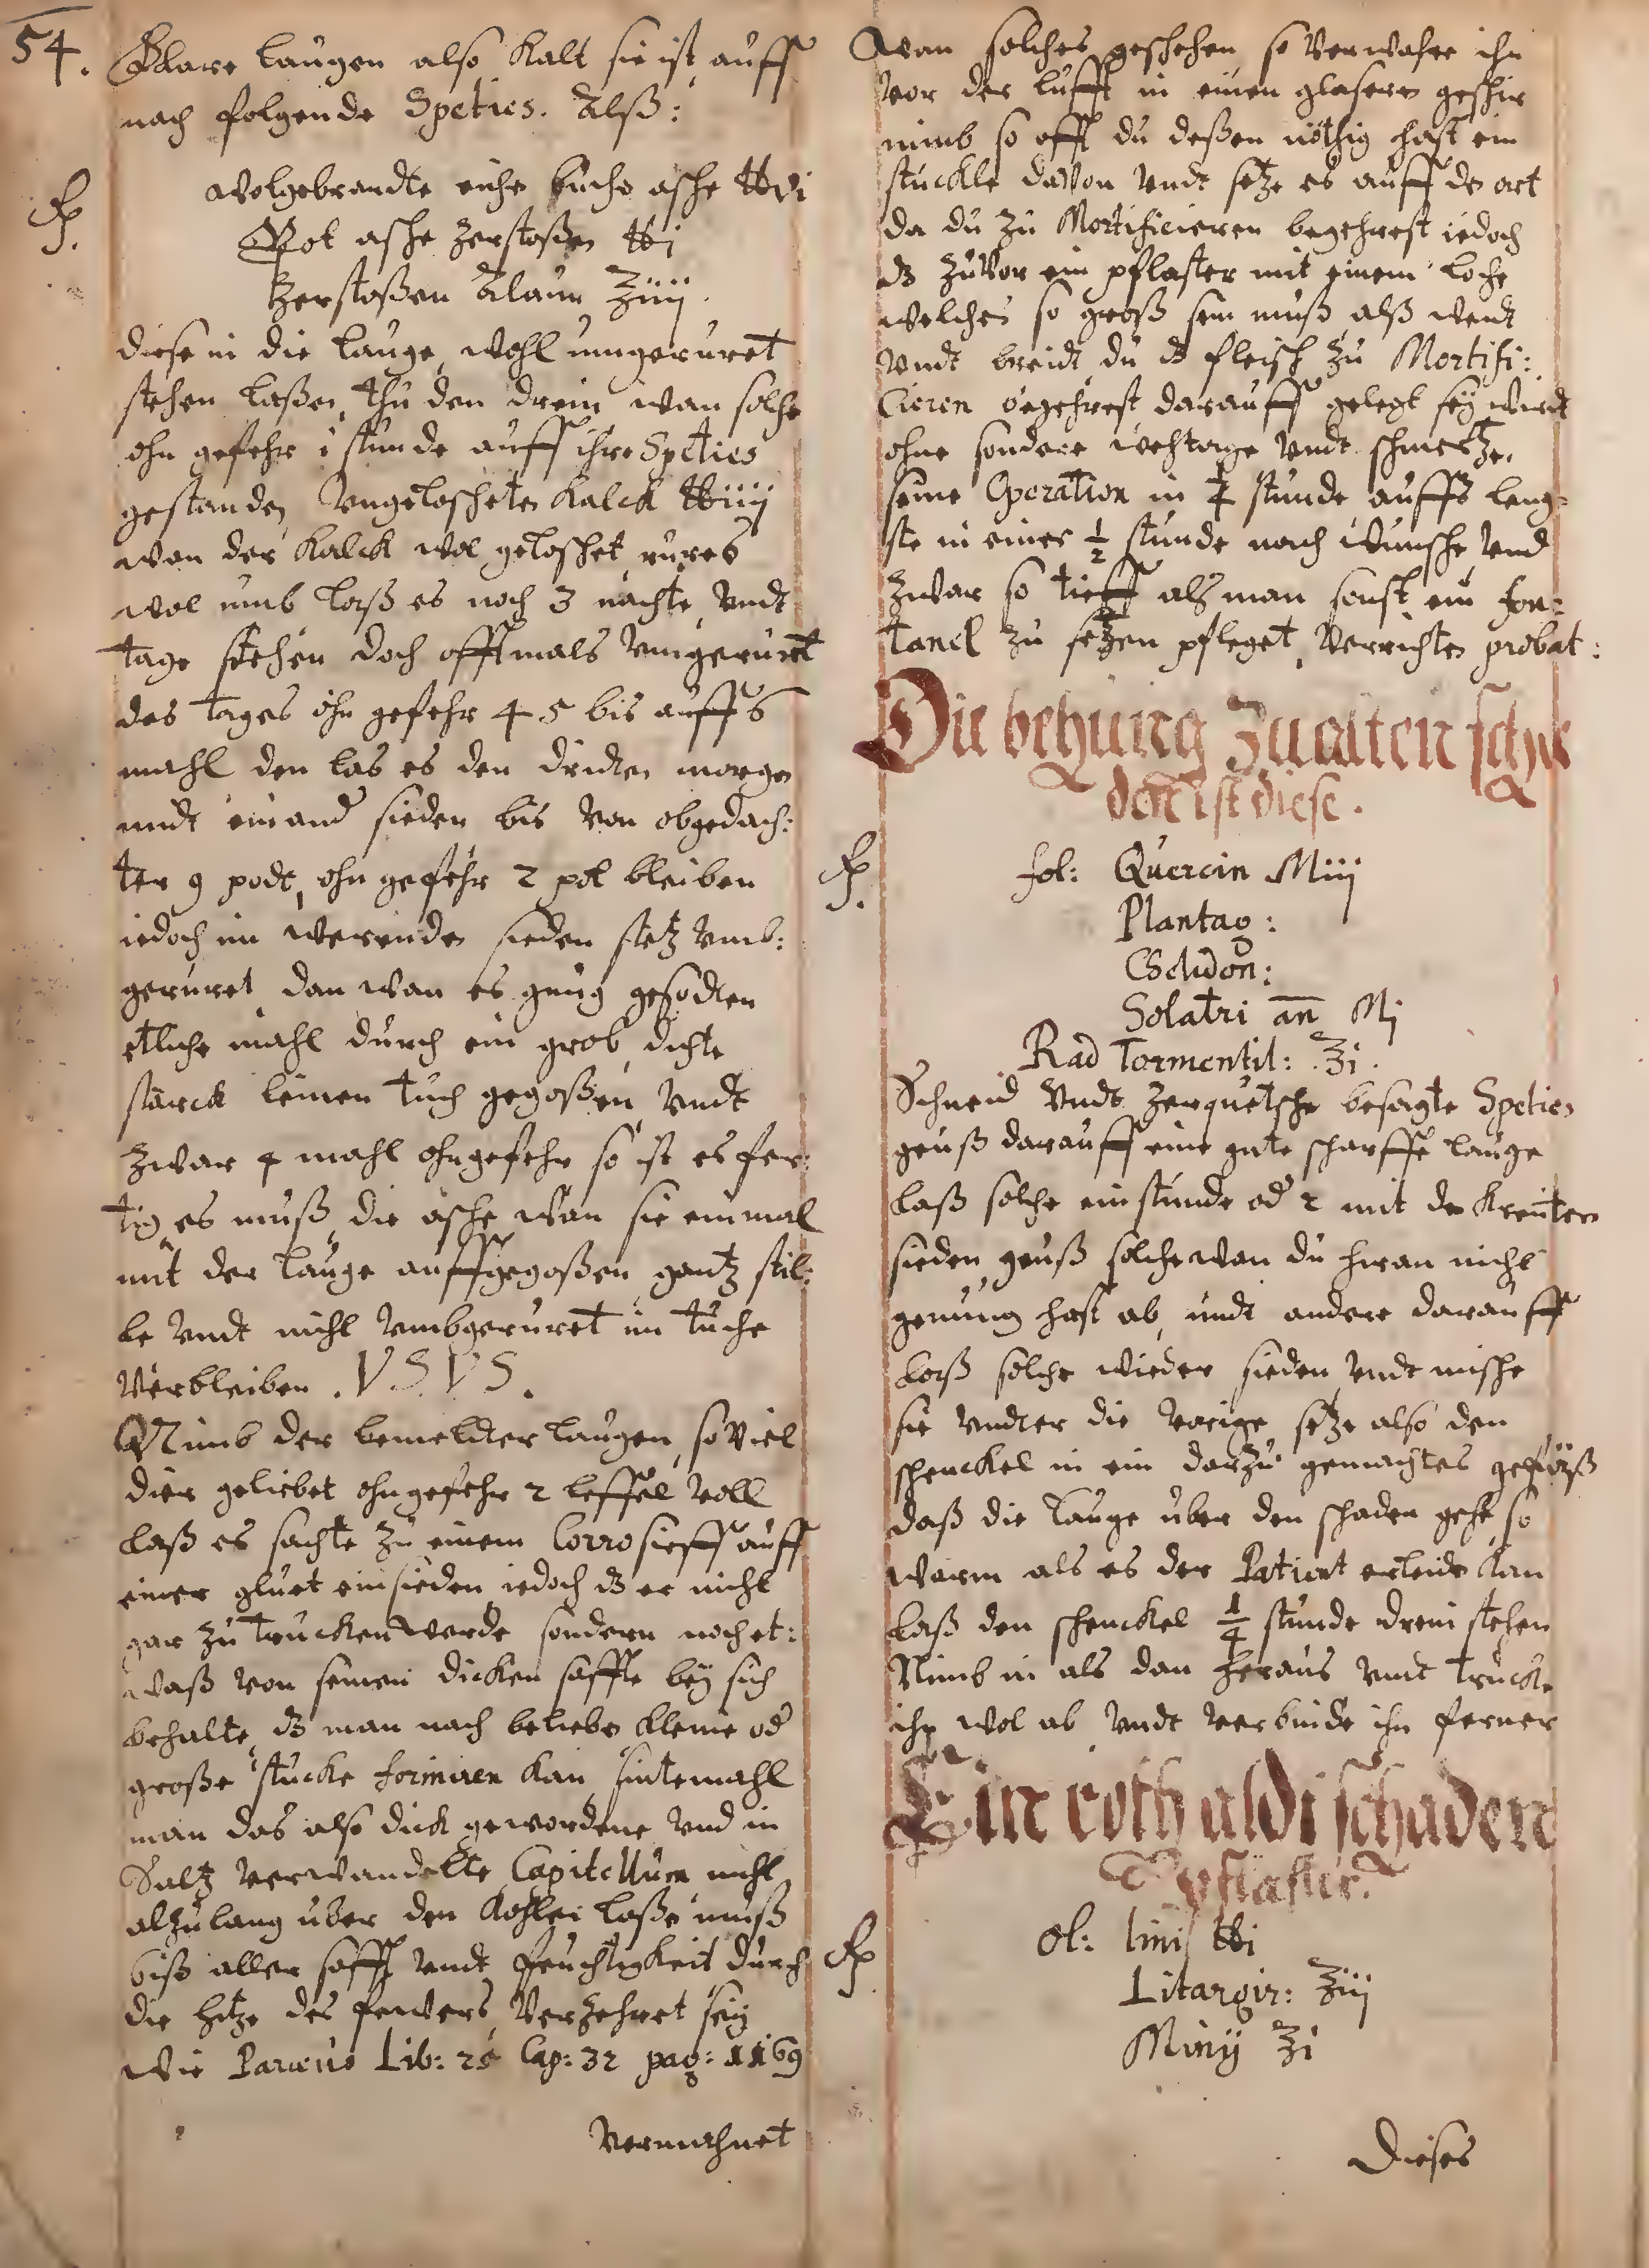 54.
Klare laugen also kalt sie ist, auff
nach folgende Speties. Alß:
℞.
wolgebrandte eiche buche asche ℔vi
Pot asche zerstoßen ℔i
zerstoßen Alaun ℥iiij.
diese in die lauge, wohl umgeruret
stehen laßen, thu den drein wan solche
ohn gefehr 1 stunde auff ihre Speties
gestanden Ungeloscheten Kalck ℔iiij
wan der Kalck wol geloschet, rures
wol umb, laß es noch 3 nachte, undt
tage stehen doch offtmals umgeruret
des tages ohn gefehr 4 5 bis auff 6
mahl den las es den dridten morgen
undt einand sieden bis von obgedach:
ter 9 podt, ohn gefehr 2 pot bleiben
iedoch im werenden sieden stetz umb:
geruret dan wan es genug gesodten
etliche mahl durch ein grob, dichte
starck leinen tuch gegoßen undt
zwar 4 mahl ohngefehr so ist es fer:
tig, es muß die asche wan sie einmal
mit der lauge auffgegoßen gantz stil:
le undt nicht umbgeruret im tuche
verbleiben. VSVS.
Nimb der bemeldter laugen, so viel
dier geliebet ohngefehr 2 leffel voll
laß es sachte zu einem Corrosieff auff
einer gluet einsieden iedoch dz er nicht
gar zu trucken werde sondern noch et:
waß von seinen dicken saffte bey sich
behalte, dz man nach belieben kleine od
große stucke formiren kan, sintemahl
man das also dick gewordene und in
Saltz verwandelte Capitellum nicht
alzulang uber den Kohlen laßen muß
biß aller safft undt feuchtigkeit durch
die hitze des fewers verzehret sey
wie Paraeus Lib: 25 Cap: 32 pag: 1169
vermahnet
Wan solches geschehen so verwahre ihn
vor der lufft in einen glasern geschir
nimb so offt du deßen nöthig hast ein
stuckle davon undt setze es auff den ort
da du zu Mortificieren begehrest iedoch
dz zuvor ein pflaster mit einem loche
welches so groß sein muß alß weit
undt breidt du dz fleisch zu Mortifi:
Cieren begehrest darauff gelegt sey wirdt
ohne sondere wehtage undt schmertzen
seine Operation in ¼ stunde auffs leng:
ste in einer ½ stunde nach wunsche, und
zwar so tieff als man sonst ein fon:
tanel zu setzen pfleget, verrichten probat:
Die behung zu alten sche
den ist diese.
℞.
fol: Quercin Miij
Plantag:
Chelidon:
Solatri an̄ Mj
Rad Tormentil: ℥i.
Schneid undt zerquetsche besagte Speties
geuß darauff eine gute scharffe lauge
laß solche ein stunde od 2 mit den kreutern
sieden, geuß solche wan du hiran nicht
genung hast ab, undt andere darauff
laß solche wieder sieden undt mische
sie undter die vorige, setze also den
schenckel in ein darzu gemachtes gefeeß
daß die lauge uber den schaden gehe, so
warm als es der Patient erleiden kan
laß den schenckel ¼ stunde drein stehen
Nimb in als dan heraus undt truckne
ihn wol ab undt verbinde ihn ferner
Ein roth aldt schaden
pflaster.
℞
Ol: lini ℔i
Litargir: ℥iij
Minij ℥i
Dieses